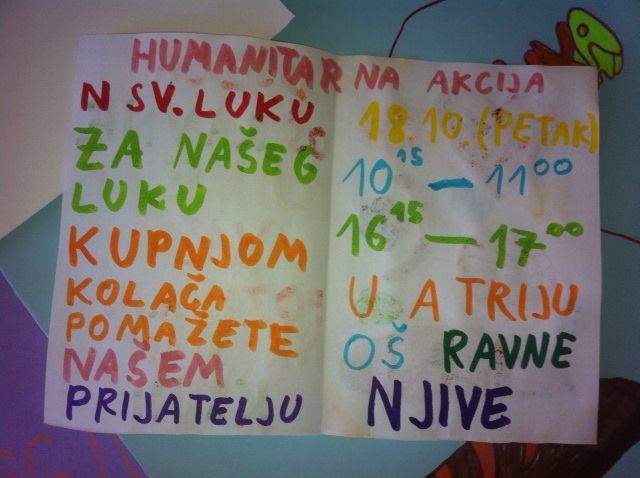 HUMANITARNA AKCIJA
N SV. LUKU
ZA NAŠEG
LUKU
KUPNJOM
KOLAČA
POMAŽETE
NAŠEM
PRIJATELJU
18.10 (PETAK)
10 15 — 11 00
16 15 — 17 00
U ATRIJU
OŠ RAVNE
NJIVE